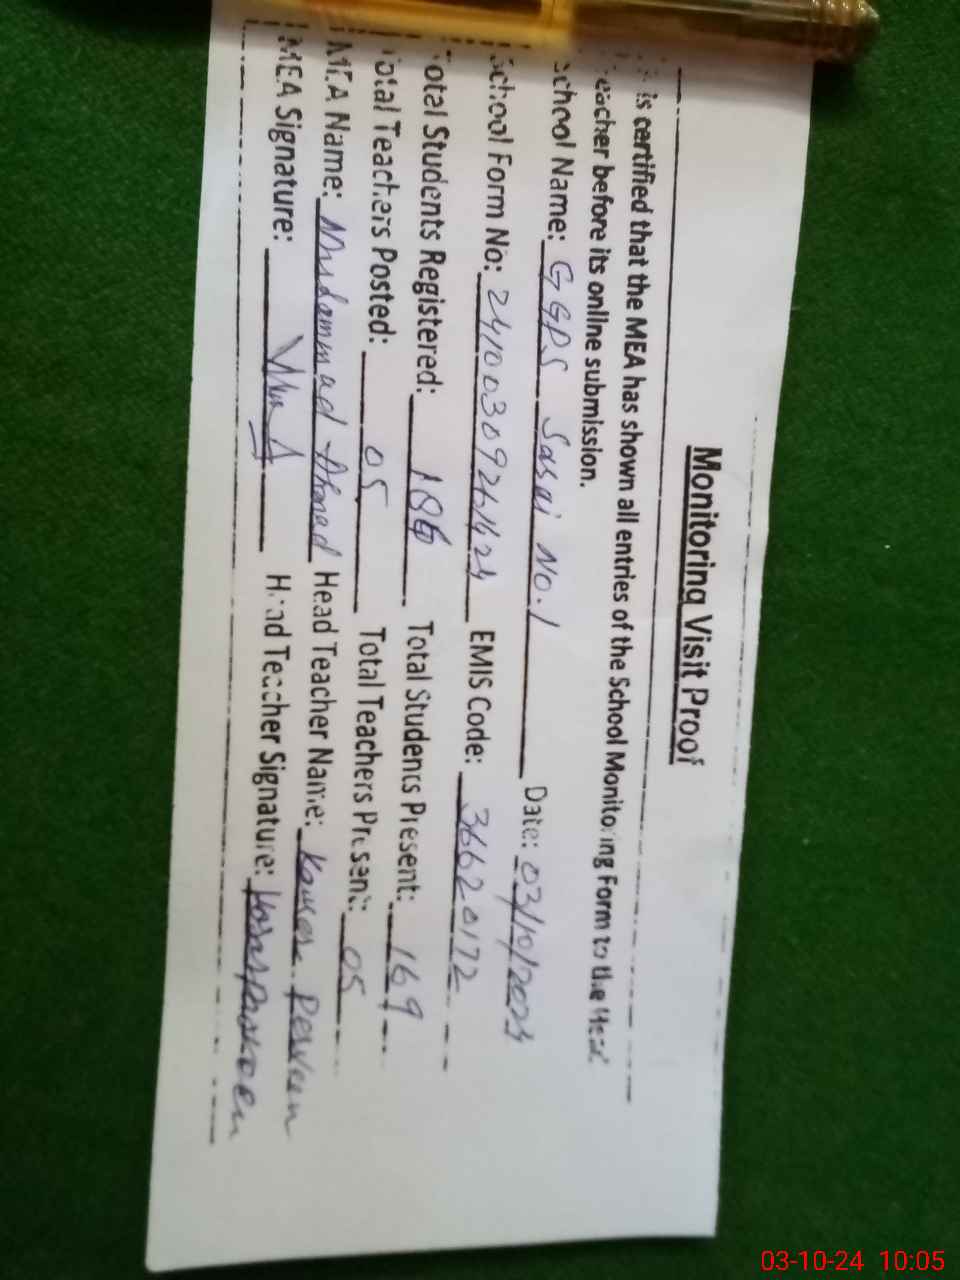 Monitoring Visit Proof
is certified that the MEA has shown all entries of the School Monitoring Form to the Head
eacher before its online submission.
School Name: GGPS Sasai No.1 Date: 03/10/2024
School Form No: EMIS Code: 36620172
otal Students Registered: 186 Total Students Present: 169
otal Teachers Posted: 05 Total Teachers Present: 05
MEA Name: Muhammad Ahmad Head Teacher Name: Perveen
MEA Signature: Head Teacher Signature:
03-10-24 10:05